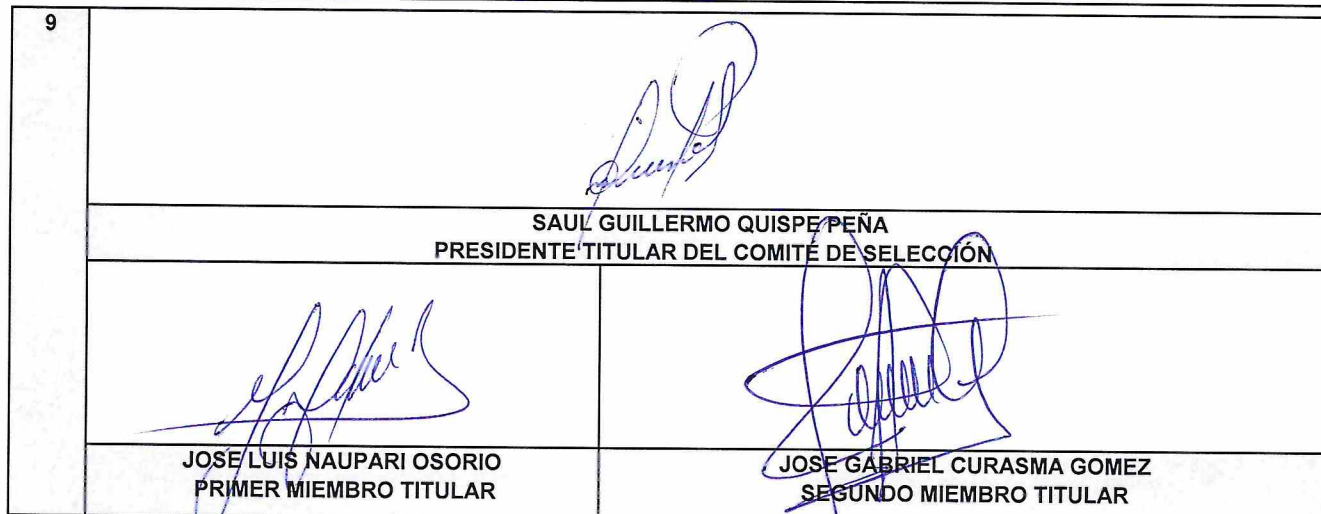 9
SAUL GUILLERMO QUISPE PEÑA
PRESIDENTE TITULAR DEL COMITÉ DE SELECCIÓN
JOSE LUIS NAUPARI OSORIO
PRIMER MIEMBRO TITULAR
JOSE GABRIEL CURASMA GOMEZ
SEGUNDO MIEMBRO TITULAR